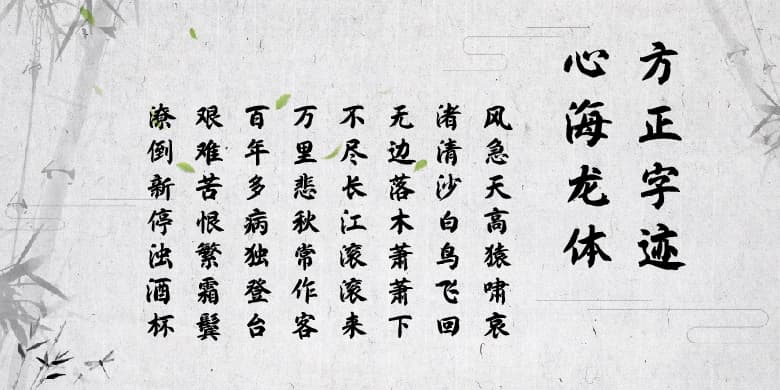 方正字迹
心海龙体
风急天高猿啸哀
渚清沙白鸟飞回
无边落木萧萧下
不尽长江滚滚来
万里悲秋常作客
百年多病独登台
艰难苦恨繁霜鬓
潦倒新停浊酒杯